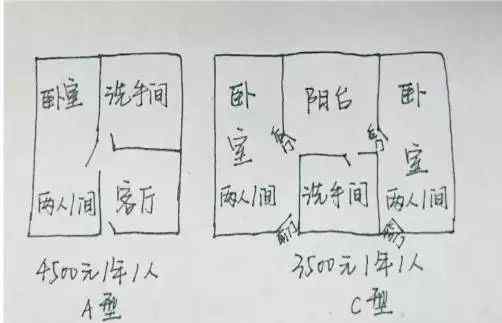 卧室
洗手间
两人1间
客厅
4500元1年1人
A型
卧室
阳台
卧室
后门
后门
两人1间
洗手间
两人1间
前门
前门
3500元1年1人
C型